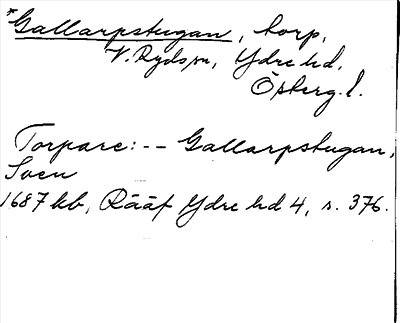 *Gallarpstugan, torp,
V. Ryds sn, Ydre hd,
Östergl.
Torpare: -- Gallarpstugan,
Sven
1687 kb, Rääf Ydre hd 4, s. 376.